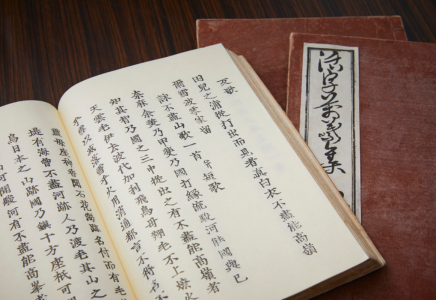 反歌
田兒之浦從打出而見者真白衣不盡能高嶺
尓雪波零家留
詠不盡山歌一首 并短歌
奈麻余美乃甲斐乃國打縁流駿河能國與己
知其智乃國之三中從出之有不盡能高嶺者
天雲毛伊去波代加利飛鳥母翔毛不上燎火
靈母座神香聞石花海跡名付而有毛
堤有海曾不盡河跡人乃渡毛其山之
日本之山跡國乃鎮十方座祇可
可聞駿河有不盡能高峯
活字萬葉集